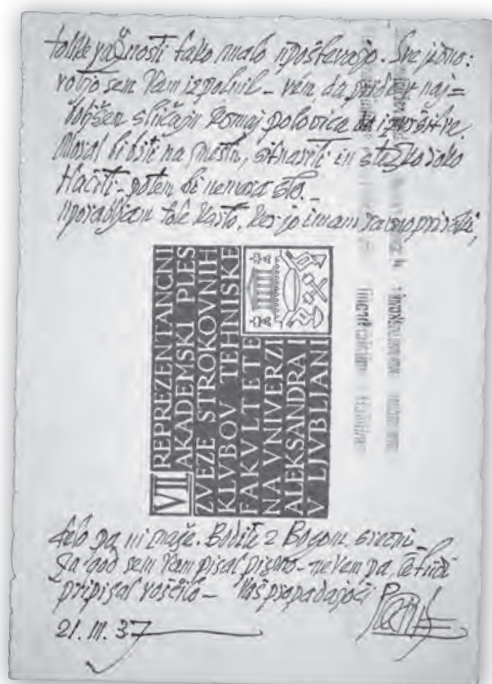 tolike važnosti tako malo upoštevajo. Sve jedno:
voljo sem Vam izpolnil – vem da pride v naj=
boljšem slučaju komaj polovica do izvršitve.
Moral bi biti na mestu, sitnariti in s težko roko
tlačiti – potem bi nemara šlo. –
Uporabljam tole karto, ker jo imam ravno pri roki,
VII REPREZENTANČNI
AKADEMSKI PLES
ZVEZE STROKOVNIH
KLVBOV TEHNISKE
FAKVLTETE
NA VNIVERZI
ALEKSANDRA I
V LJVBLJANI
delo pa ni moje. Bodite z Bogom srečni –
Za god sem Vam pisal pismo – ne vem pa, če tudi
pripisal voščila – Vaš propadajoči
21. III. 37